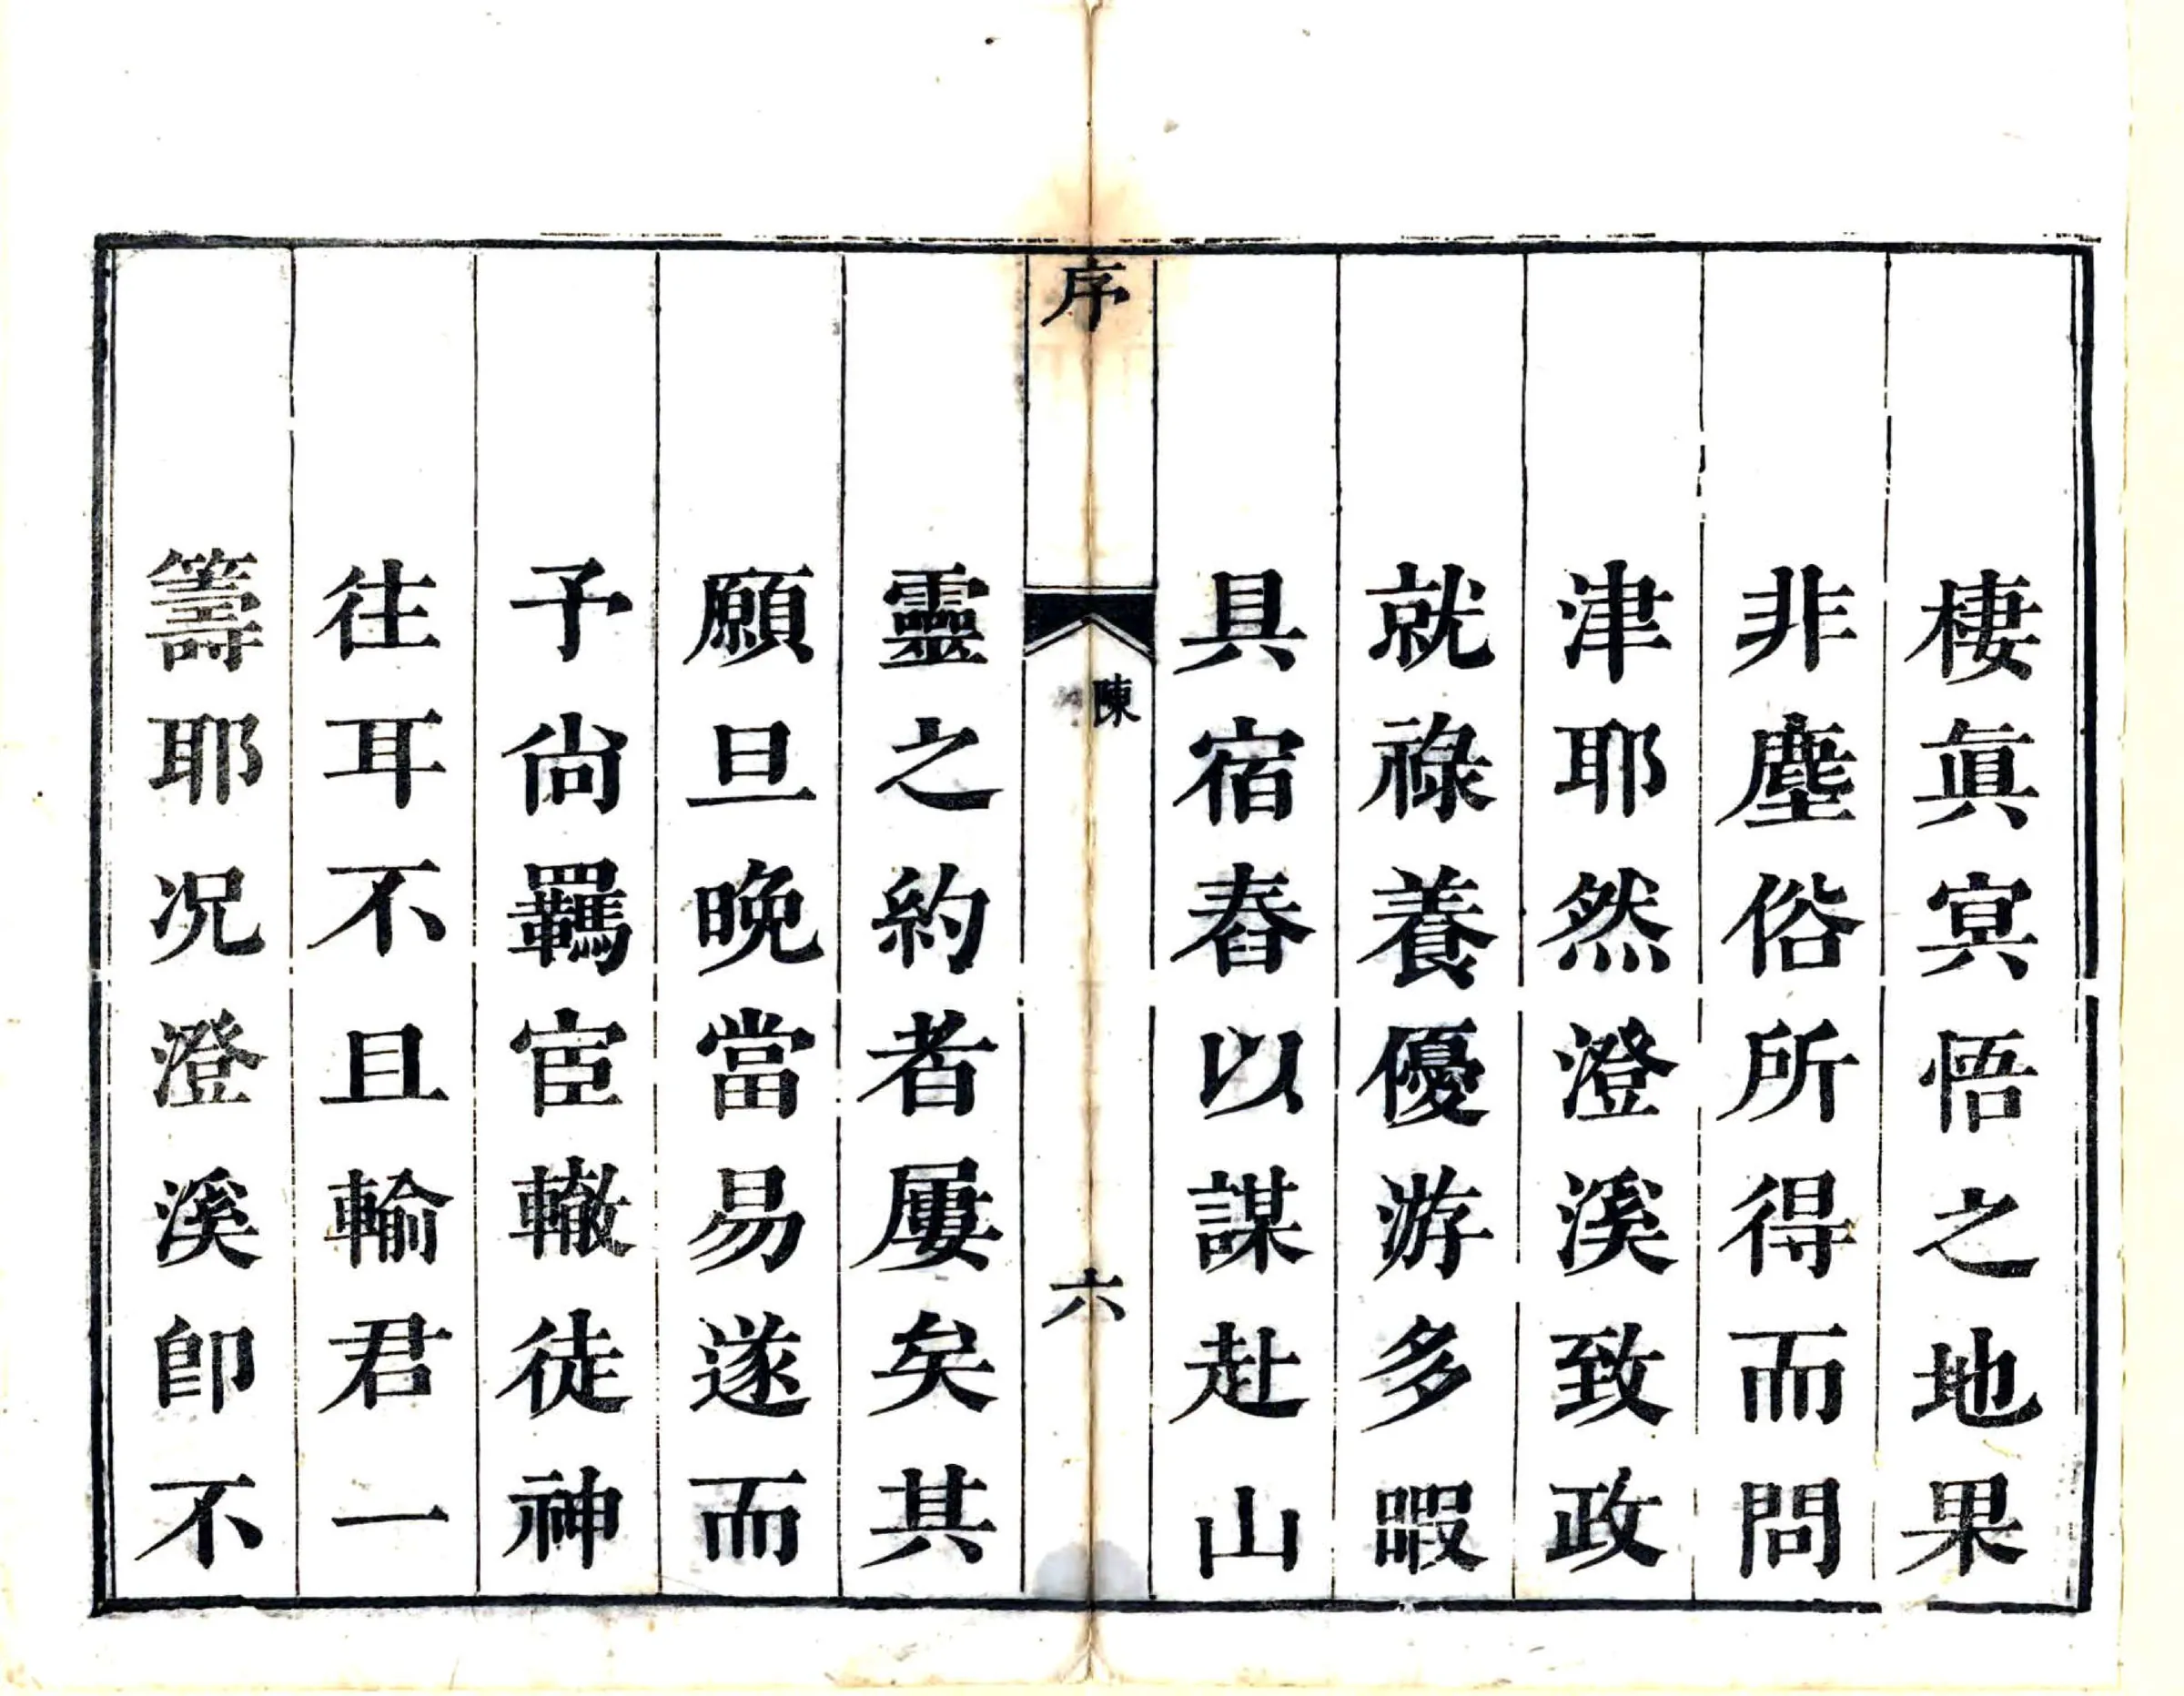 棲眞冥悟之地果
非塵俗所得而問
津耶然澄溪致政
就祿養優游多暇
具宿舂以謀赴山
序
陳
六
靈之約者屢矣其
願旦晚當易遂而
予尙羈宦轍徒神
往耳不且輸君一
籌耶况澄溪卽不